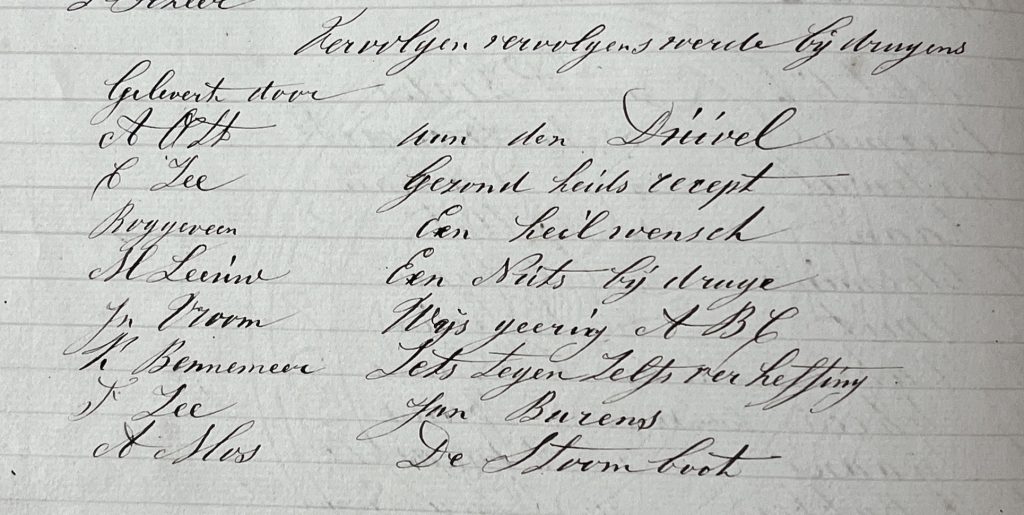 Vervolgen vervolgens werde bij dragens
Gelevert door
A Ott aan den Duivel
C Zee Gezond heids recept
Roggeveen Een heil wensch
M Leeuw Een Nuts bij drage
Jn Vroom Wijs geerig A B C
K Bennemeer Iets tegen Zelfs ver heffing
F Zee Jan Barens
A Mos De Stoom boot